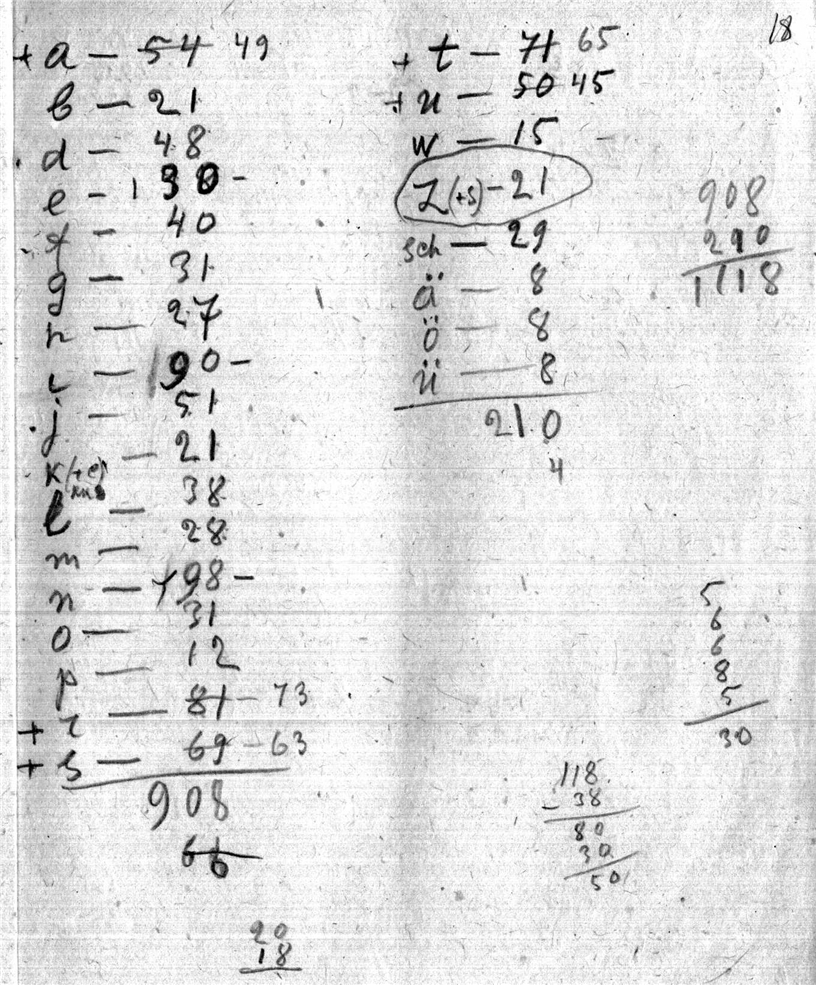 18
+ a – 54 49
b – 21
d – 48
e – 130 –
f – 40
g – 31
h – 27
i – 190 –
j – 51
k (+c) – 21
l – 38
m – 28
n – 198 –
o – 31
p – 12
+ r – 81 – 73
+ s – 69 – 63
908
66
20
18
+ t – 71 65
+ u – 50 45
w – 15
Z (+s) – 21
sch – 29
ä – 8
ö – 8
ü – 8
210
4
908
210
1118
5
6
6
8
5
30
118
– 38
80
30
50